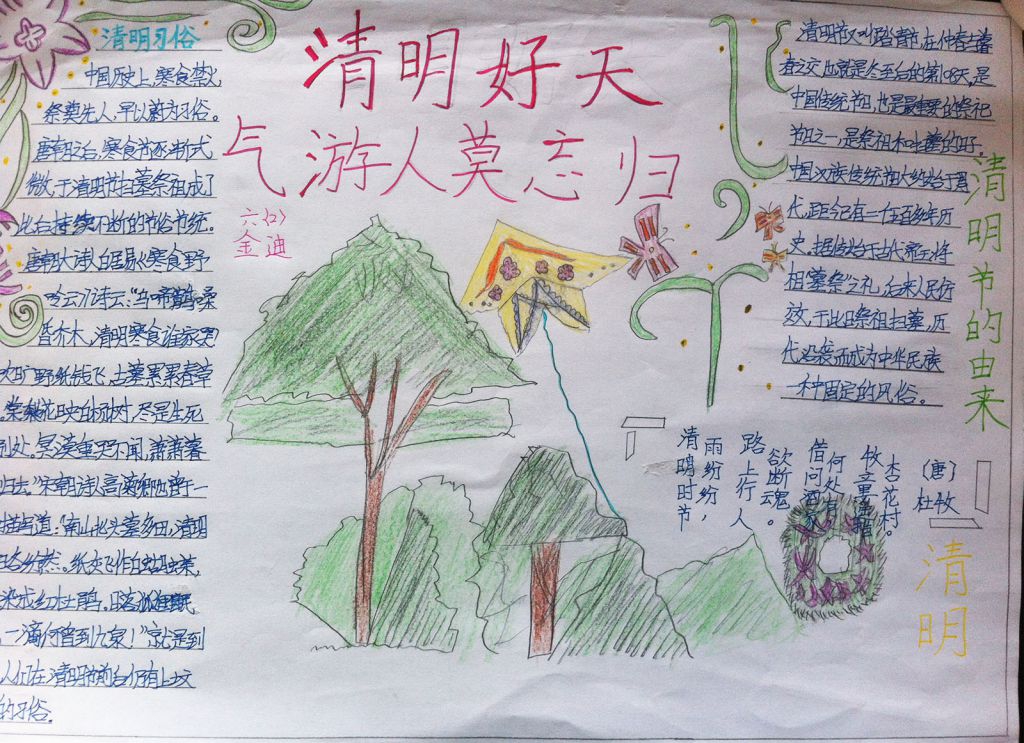 清明好天
气游人莫忘归
六(2)
金迪
清明习俗
中国历史上,寒食禁火,
祭奠先人,早以蔚为习俗。
唐朝之后,寒食节逐渐式
微,于清明节扫墓祭祖成了
此后持续不断的节俗传统。
唐朝大诗人白居易《寒食野
吟》诗云:"乌啼鹊噪
昏乔木,清明寒食谁家哭
旷野纸钱飞,古墓累累春草
棠梨花映白杨树,尽是生死
别处。冥漠重泉哭不闻,萧萧暮
归去"宋朝诗人高菊卿也曾于一
描写道:"南山北头墓多田,清明
各纷然。纸灰飞作白蝴蝶,
染成红杜鹃。日落狐狸眠
一滴何曾到九泉!"就是到
人们在清明节前后仍有上坟
的习俗。
清明节又叫踏青节,在仲春与暮
春之交,也就是冬至后的第108天,是
中国传统节日,也是最重要的祭祀
节日之一,是祭祖和扫墓的日子。
中国汉族传统
代,距今已有二千五百多年历
史,据传始于古代帝王将
相"墓祭"之礼,后来人民仿
效,于此日祭祖扫墓,历
代沿袭而成为中华民族
一种固定的风俗。
清明节的由来
清明
(唐)
杜牧
清明时节
雨纷纷,
路上行人
欲断魂。
借问酒家
何处有
牧童遥指
杏花村。